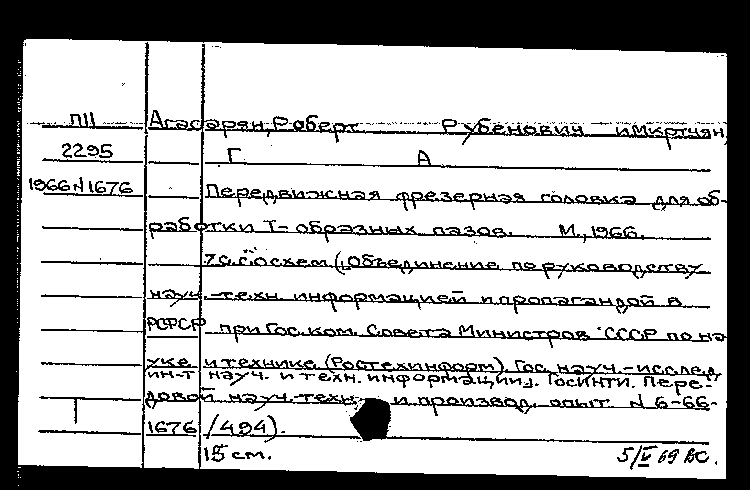 П11 Агасарян, Роберт Рубенович и Мкртчян,
2295 Г А
1966 N 1676 Передвижная фрезерная головка для об-
работки Т-образных пазов. М., 1966.
7 с. со схем. (Объединение по руководству
науч.-техн. информацией и пропагандой в
РСФСР при Гос. ком. Совета Министров СССР по на
уке и технике (Ростехинформ). Гос. науч.-исслед.
ин-т науч. и техн. информации. ГОСИНТИ. Пере-
довой науч.-техн. и производ. опыт. N 6-66-
1676/494).
15 см. 5/V 69 ВС.